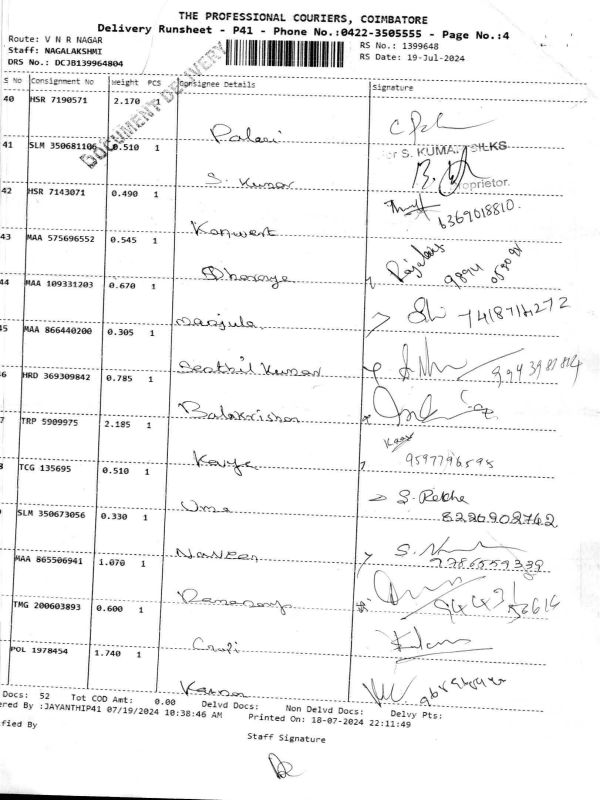 THE PROFESSIONAL COURIERS, COIMBATORE
Delivery Runsheet - P41 - Phone No.:0422-3505555 - Page No.:4
Route: V N R NAGAR
RS No.: 1399648
Staff: NAGALAKSHMI
RS Date: 19-Jul-2024
DRS No.: DCJB139964804
DOCUMENT DELIVERY
S No Consignment No Weight PCS Consignee Details Signature
40 HSR 7190571 2.170 1
Palani
41 SLM 350681106 0.510 1
S. KUMAR SILKS
S. Kumar
Proprietor.
42 HSR 7143071 0.490 1
6369018810.
Kanwert
43 MAA 575696552 0.545 1
44 MAA 109331203 0.670 1
7418714272
manjula
45 MAA 866440200 0.305 1
Senthil Kumar
46 HRD 369309842 0.785 1
Balakrishnan
7 TRP 5909975 2.185 1
9597796595
Kavya
8 TCG 135695 0.510 1
S. Rekha
8220902742
Uma
SLM 350673056 0.330 1
Naveen
MAA 865506941 1.070 1
TMG 200603893 0.600 1
POL 1978454 1.740 1
Docs: 52 Tot COD Amt: 0.00 Delvd Docs: Non Delvd Docs: Delvy Pts:
ered By :JAYANTHIP41 07/19/2024 10:38:46 AM Printed On: 18-07-2024 22:11:49
ified By
Staff Signature